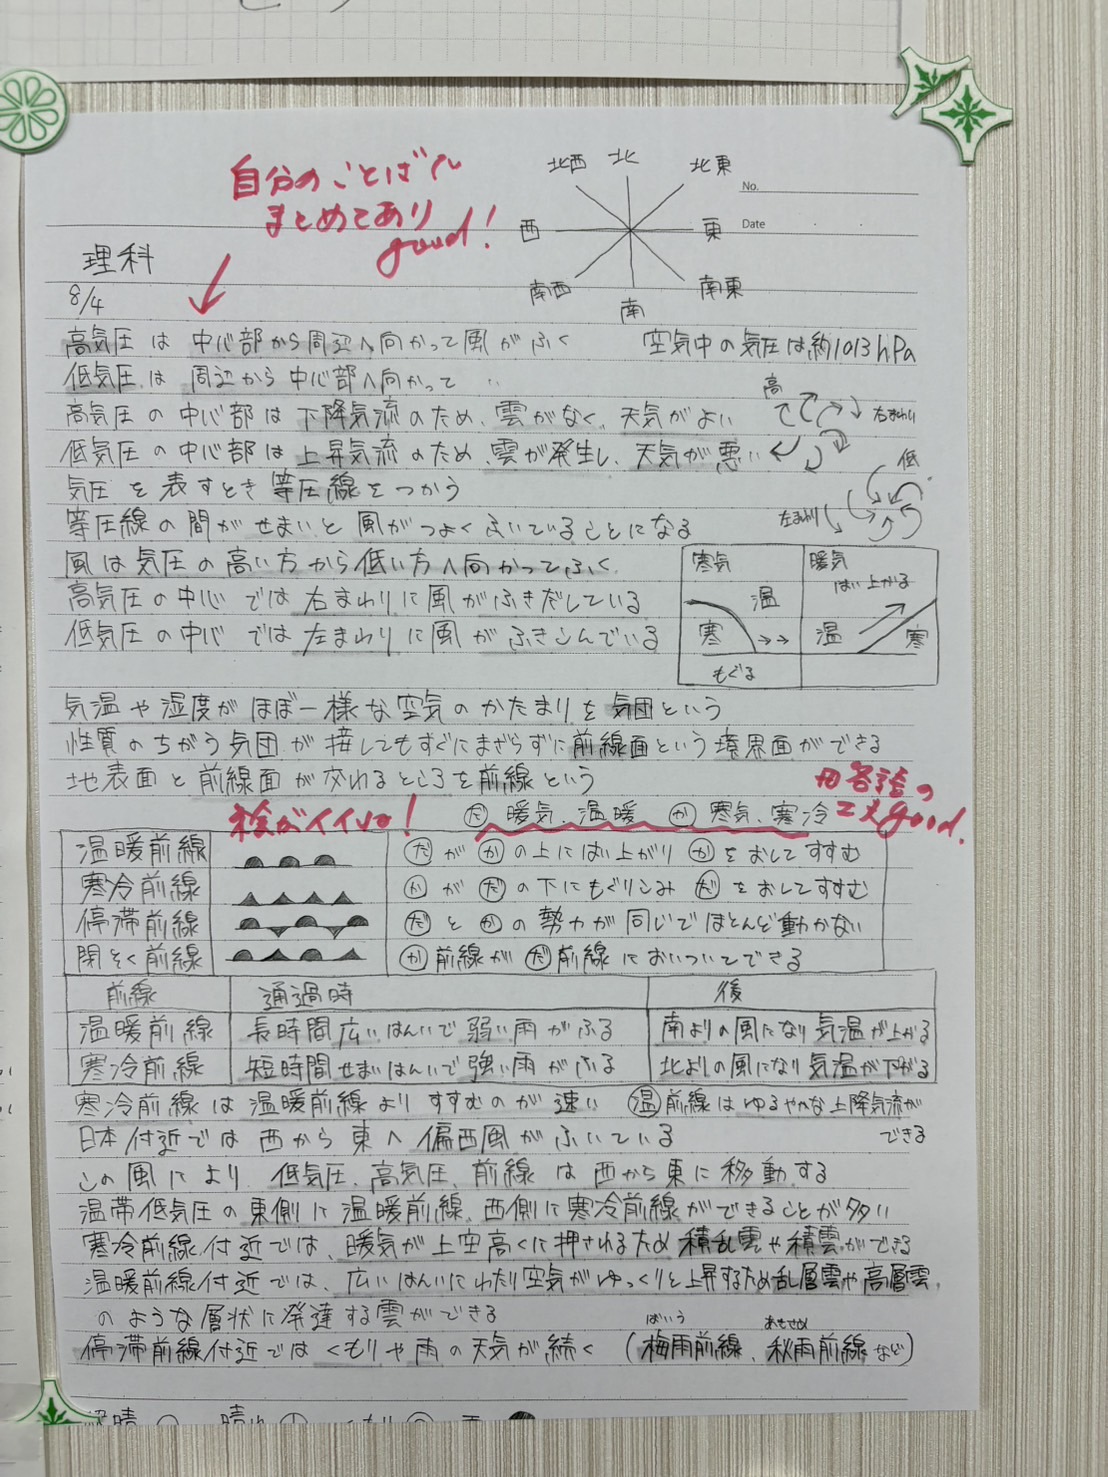 自分のことばで
まとめてあり
good!
北西 北 北東
西 東
南西 南 南東
No.
Date
理科
8/4
高気圧は 中心部から周辺へ向かって風がふく 空気中の気圧は約1013hPa
低気圧は 周辺から中心部へ向かって 〃
高気圧の中心部は下降気流のため、雲がなく、天気がよい
低気圧の中心部は上昇気流のため、雲が発生し、天気が悪い
高 右まわり
低 左まわり
気圧を表すとき等圧線をつかう
等圧線の間がせまいと風がつよくふいていることになる
風は気圧の高い方から低い方へ向かってふく
高気圧の中心では右まわりに風がふきだしている
低気圧の中心では左まわりに風がふきこんでいる
寒気 暖気
はい上がる
温
寒 →→ 温 寒
もぐる
気温や湿度がほぼ一様な空気のかたまりを気団という
性質のちがう気団が接してもすぐにまざらずに前線面という境界面ができる
地表面と前線面が交わるところを前線という
絵がイイね!
だ 暖気、温暖 か 寒気、寒冷
工夫good.
温暖前線 だがかの上にはい上がりかをおしてすすむ
寒冷前線 かがだの下にもぐりこみだをおしてすすむ
停滞前線 だとかの勢力が同じでほとんど動かない
閉そく前線 か前線がだ前線においついてできる
前線 通過時 後
温暖前線 長時間広いはんいで弱い雨がふる 南よりの風になり気温が上がる
寒冷前線 短時間せまいはんいで強い雨がふる 北よりの風になり気温が下がる
寒冷前線は温暖前線よりすすむのが速い 温前線はゆるやかな上降気流が
できる
日本付近では西から東へ偏西風がふいている
この風により、低気圧、高気圧、前線は西から東に移動する
温帯低気圧の東側に温暖前線、西側に寒冷前線ができることが多い
寒冷前線付近では、暖気が上空高くに押されるため積乱雲や積雲ができる
温暖前線付近では、広いはんいにわたり空気がゆっくりと上昇するため乱層雲や高層雲
のような層状に発達する雲ができる
ばいう あきさめ
停滞前線付近ではくもりや雨の天気が続く (梅雨前線、秋雨前線など)